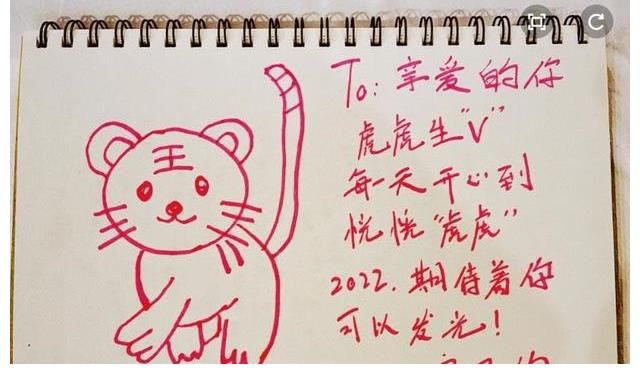 To: 亲爱的你
虎虎生“V”
每一天开心到
恍恍“虎虎”
2022.期待着你
可以发光!
王